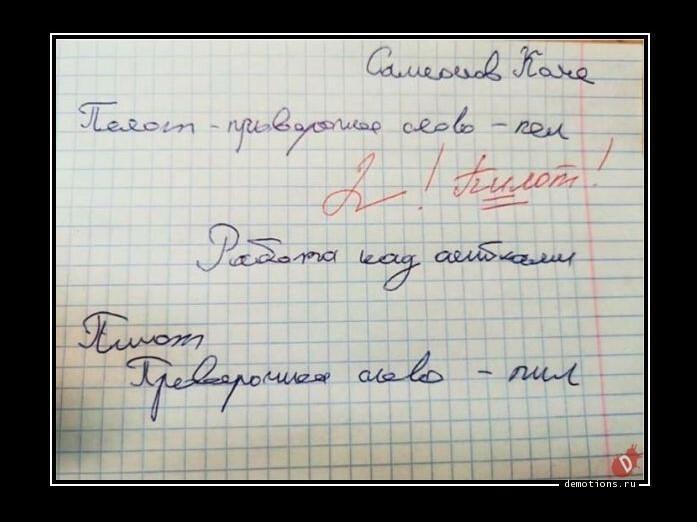 Самсонов Коче
Пелот - прыверочное слово - пел
2! Пилот!
Работа над аштбками
Пилот
Преверочнае слово - пил
demotions.ru